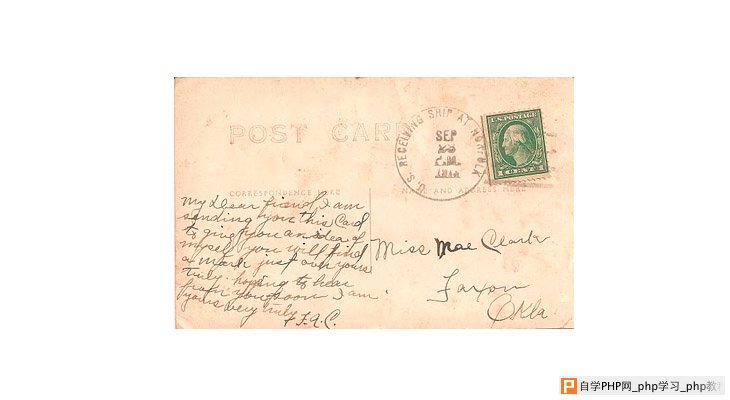 POST CARD
U.S. RECEIVING SHIP AT NORFOLK
SEP
U.S. POSTAGE
1 CENT 1
CORRESPONDENCE HERE
NAME AND ADDRESS HERE
My Dear friend, I am
sending you this Card
to give you an idea of
myself you will find
a mark just over yours
truly. hoping to hear
from you soon I am.
yours very truly
F.A.C.
Miss Mae Clark
Faxon
Okla.
自学PHP网_php学习_php教程